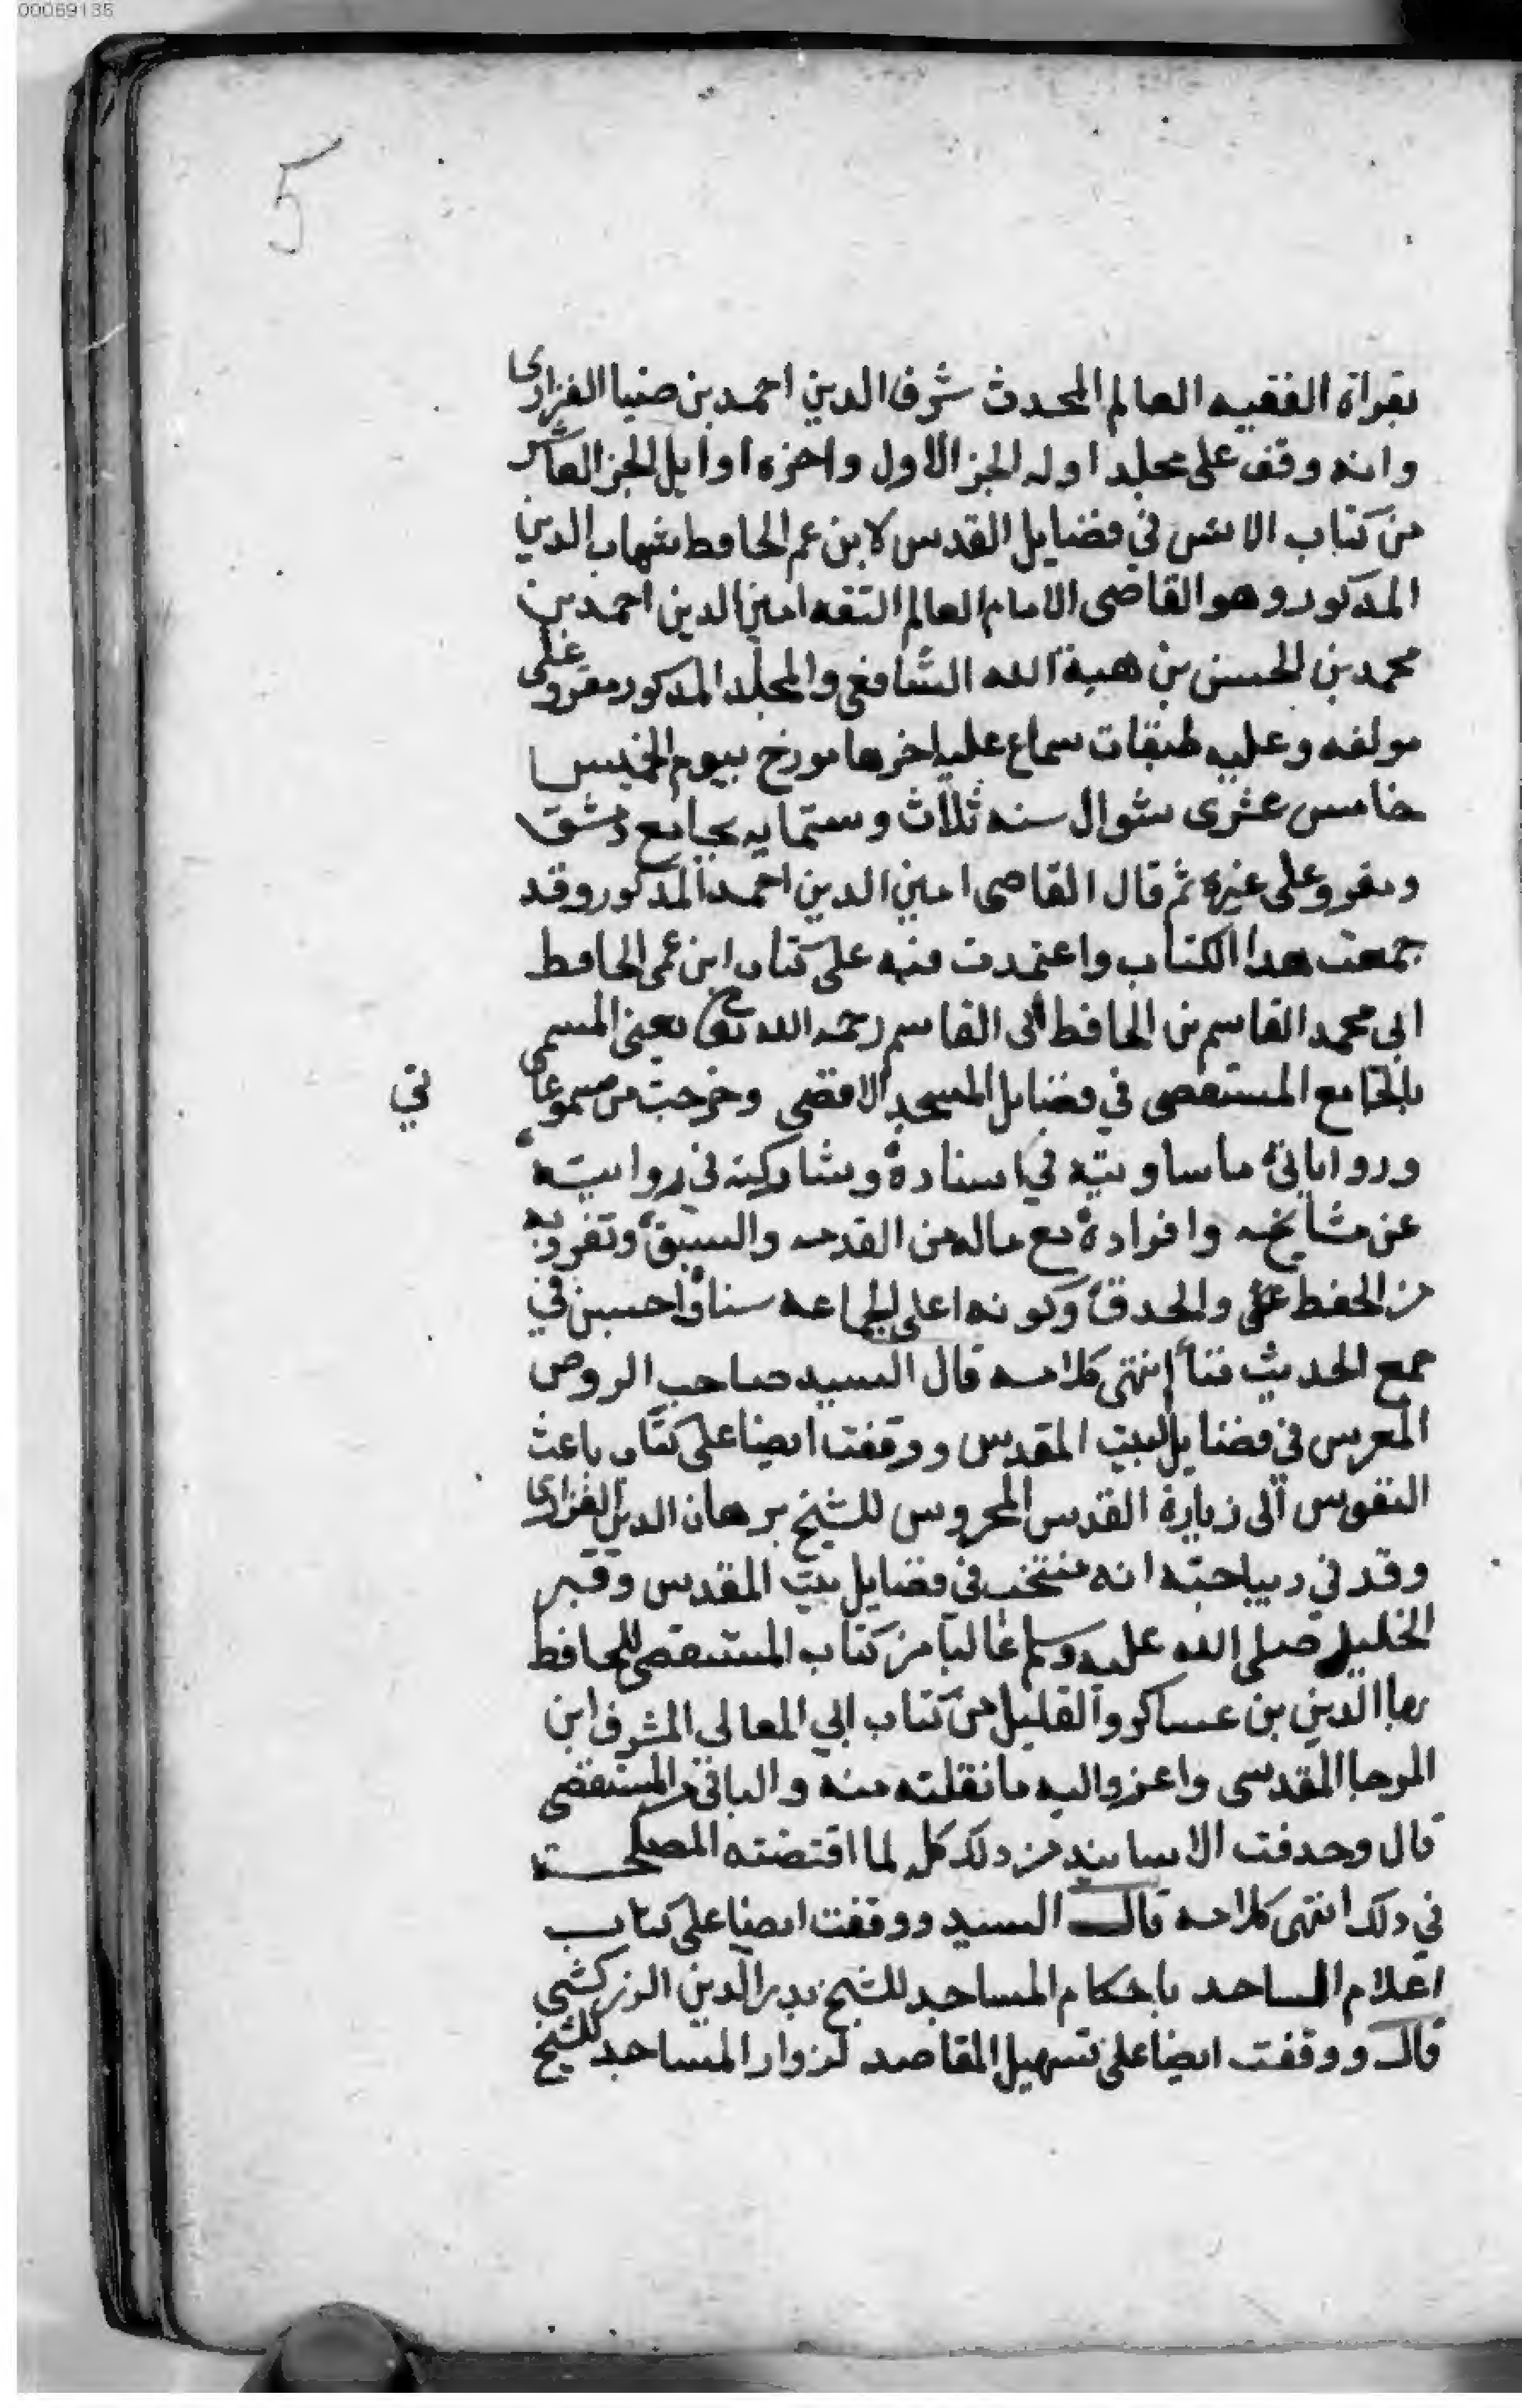 00069135
5
بقراة الفقيه العالم المحدث شرف الدين احمد بن ضيا الفزارى
وانه وقف على مجلد اوله الجز الاول واخره اوايل الجز العاشر
من كتاب الانس في فضايل القدس لابن عم الحافط شهاب الدين
المدكور وهو القاضى الامام العالم الثقه امين الدين احمد بن
محمد بن الحسن بن هبة الله الشافعي والمجلد المدكور مقرو على
مولفه وعليه طبقات سماع عليه اخرها مورخ بيوم الخميس
خامس عشرى شوال سنه ثلاث وستمايه بجامع دمشق
ومقرو على غيره ثم قال القاضى امين الدين احمد المدكور وقد
جمعت هدا الكتاب واعتمدت فيه على كتاب ابن عمى الحافط
ابي محمد القاسم بن الحافط ابى القاسم رحمه الله تعا يعنى المسمى
بالجامع المستقصى في فضايل المسجد الاقصى وخرجت من مسموعا
تي
ورواياتي ما ساويته في اسناده وشاركته في روايته
عن مشايخه وافراده مع ماله من القدمه والسبق وتفرده
من الحفط والحدق وكونه اعلى الجماعه سنا واحسبن في
جمع الحديث فنا انتهى كلامه قال السيد صاحب الروض
المغرس في فضايل البيت المقدس ووقفت ايضا على كتاب باعث
النفوس الى زيارة القدس المحروس للشيخ برهان الدين الفزارى
وقد في ديباجته انه منتخب في فضايل بيت المقدس وقبر
الخليل صلى الله عليه وسلم غالبا من كتاب المستقصى للحافط
بها الدين بن عساكر والقليل من كتاب ابي المعالى المشرف ابن
المرجا المقدسى واعزو اليه ما نقلته منه والباقي من المستقصى
قال وحدفت الاسانيد من دلك كله لما اقتضته المصلحة
في دلك انتهى كلامه قال السيد ووقفت ايضا على كتاب
اعلام الساجد باحكام المساجد للشيخ بدر الدين الزركشي
قال ووقفت ايضا على تسهيل المقاصد لزوار المساجد للشيخ